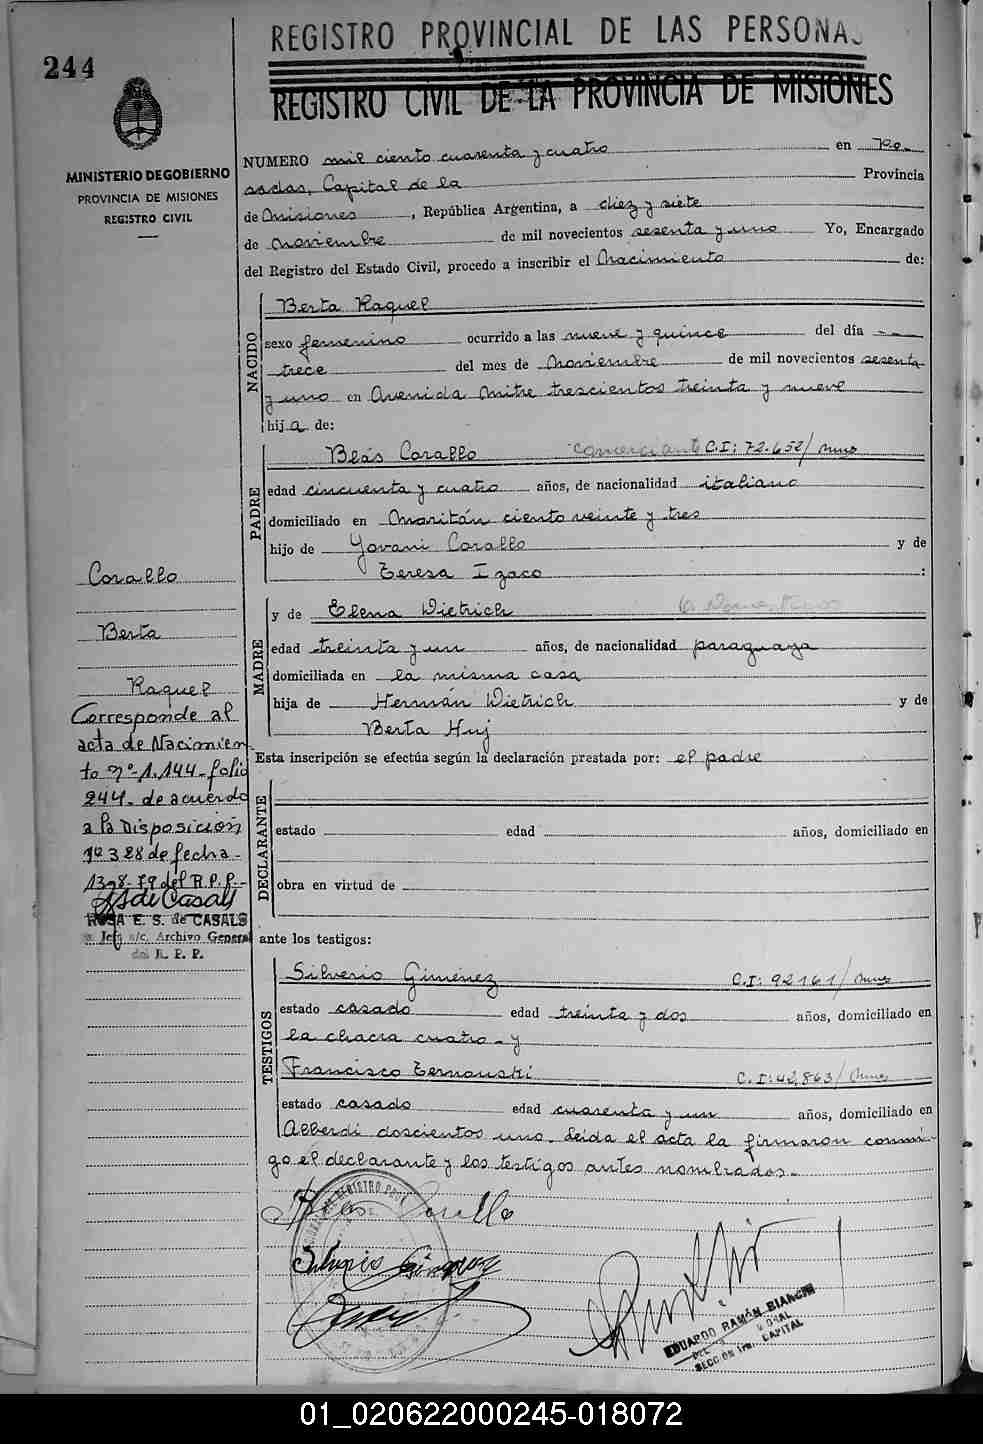 244
REGISTRO PROVINCIAL DE LAS PERSONAS
REGISTRO CIVIL DE LA PROVINCIA DE MISIONES
MINISTERIO DE GOBIERNO
PROVINCIA DE MISIONES
REGISTRO CIVIL
NUMERO mil ciento cuarenta y cuatro en Po-
sadas, Capital de la Provincia
de Misiones, República Argentina, a diez y siete
de noviembre de mil novecientos sesenta y uno Yo, Encargado
del Registro del Estado Civil, procedo a inscribir el Nacimiento de:
NACIDO
Berta Raquel
sexo femenino ocurrido a las nueve y quince del día --
trece del mes de Noviembre de mil novecientos sesenta
y uno en Avenida Mitre trescientos treinta y nueve
hija de:
PADRE
Blás Corallo comerciante C.I: 72.652/ Mnes
edad cincuenta y cuatro años, de nacionalidad italiano
domiciliado en Maritán ciento veinte y tres
hijo de Yovani Corallo y de
Teresa Izaco :
MADRE
y de Elena Dietrich
edad treinta y un años, de nacionalidad paraguaya
domiciliada en la misma casa
hija de Hermán Dietrich y de
Berta Huj
Esta inscripción se efectúa según la declaración prestada por: el padre
DECLARANTE
estado edad años, domiciliado en
obra en virtud de
ante los testigos:
TESTIGOS
Silverio Giménez C.I: 92161/ Mnes
estado casado edad treinta y dos años, domiciliado en
la chacra cuatro - y
Francisco Ternouski C.I: 42,863/ Mnes
estado casado edad cuarenta y un años, domiciliado en
Alberdi doscientos uno. Leida el acta la firmaron conmi-
go el declarante y los testigos antes nombrados.-
Corallo
Berta
Raquel
Corresponde al
acta de Nacimien
to nº-1.144-folio
244- de acuerdo
a la Disposición
nº 328 de fecha-
13-8-79 del R.P.P.-
ROSA E. S. de CASALS
Jefe a/c. Archivo General
del R. P. P.
Blas Corallo
Silverio Giménez
EDUARDO RAMÓN BIANCHI
SECCION 1ra. CAPITAL
01_020622000245-018072